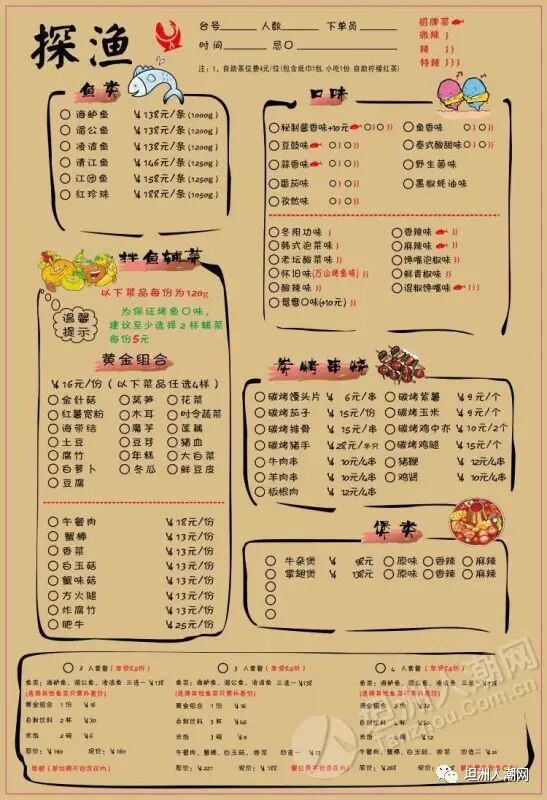 探渔
台号 人数 下单员
时间 忌口
注：1、自助茶位费4元/位(包含纸巾1包, 小吃1份 自助柠檬红茶)
招牌菜
微辣
辣
特辣
鱼类
海鲈鱼 ¥ 138元/条 (1000g)
湄公鱼 ¥ 138元/条 (1200g)
凌波鱼 ¥ 138元/条 (1200g)
清江鱼 ¥ 146元/条 (1250g)
江团鱼 ¥ 158元/条 (1250g)
红珍珠 ¥ 188元/条 (1050g)
口味
秘制酱香味+10元
豆豉味
蒜香味
番茄味
孜然味
鱼香味
泰式酸甜味
野生菌味
黑椒蚝油味
冬用功味
韩式泡菜味
老坛酸菜味
怀旧味(万山烤鱼味)
酸辣味
鸳鸯口味(+10元)
香辣味
麻辣味
馋嘴泡椒味
鲜青椒味
诱椒馋嘴味
拌鱼辅菜
以下菜品每份为120g
温馨提示
为保证烤鱼口味,
建议至少选择2样辅菜
每份5元
黄金组合
¥ 16元/份 (以下菜品任选4样)
金针菇 莴笋 花菜
红薯宽粉 木耳 时令蔬菜
海带结 魔芋 莲藕
土豆 豆芽 猪血
腐竹 年糕 大白菜
白萝卜 冬瓜 鲜豆皮
豆腐
午餐肉 ¥ 18元/份
蟹棒 ¥ 13元/份
香菜 ¥ 13元/份
白玉菇 ¥ 13元/份
蟹味菇 ¥ 13元/份
方火腿 ¥ 13元/份
炸腐竹 ¥ 13元/份
肥牛 ¥ 25元/份
炭烤串烧
碳烤馒头片 ¥ 6元/串
碳烤茄子 ¥ 15元/份
碳烤排骨 ¥ 15元/串
碳烤猪手 ¥ 28元/半只
牛肉串 ¥ 10元/4串
羊肉串 ¥ 10元/4串
板根肉 ¥ 12元/4串
碳烤紫薯 ¥ 9元/个
碳烤玉米 ¥ 9元/个
碳烤鸡中亦 ¥ 10元/2个
碳烤鸡腿 ¥ 15元/个
猪鞭 ¥ 12元/4串
鸡肾 ¥ 10元/4串
煲类
牛杂煲 ¥ 98元 原味 香辣 麻辣
掌翅煲 ¥ 138元 原味 香辣 麻辣
2 人套餐 (享受8.6折)
鱼类：海鲈鱼、湄公鱼、凌波鱼 三选一 ¥138
(选择其他鱼类只需补差价)
黄金组合 1 份 ¥16
自制饮料 2 杯 ¥30
米饭 2 碗 ¥
原价：¥ 现价：¥
套餐(茶位费不包含在内)
3 人套餐 (享受8.6折)
鱼类：海鲈鱼、湄公鱼、凌波鱼 三选一 ¥138
(选择其他鱼类只需补差价)
黄金组合 1 份 ¥16
自制饮料 3 杯 ¥45
米饭 3 碗 ¥
午餐肉、蟹棒、白玉菇、香菜 四选一
原价：¥221 现价：¥
餐位费不包含在内
4 人套餐 (享受8.6折)
鱼类：海鲈鱼、湄公鱼、凌波鱼 三选一 ¥138
(选择其他鱼类只需补差价)
黄金组合 2 份
自制饮料 4 杯
米饭 4 碗
午餐肉、蟹棒、白玉菇、香菜 四选二
原价：¥ 现价：¥
餐位费不包含在内
坦洲人潮网
Tanzhou.com.cn
坦洲人潮网